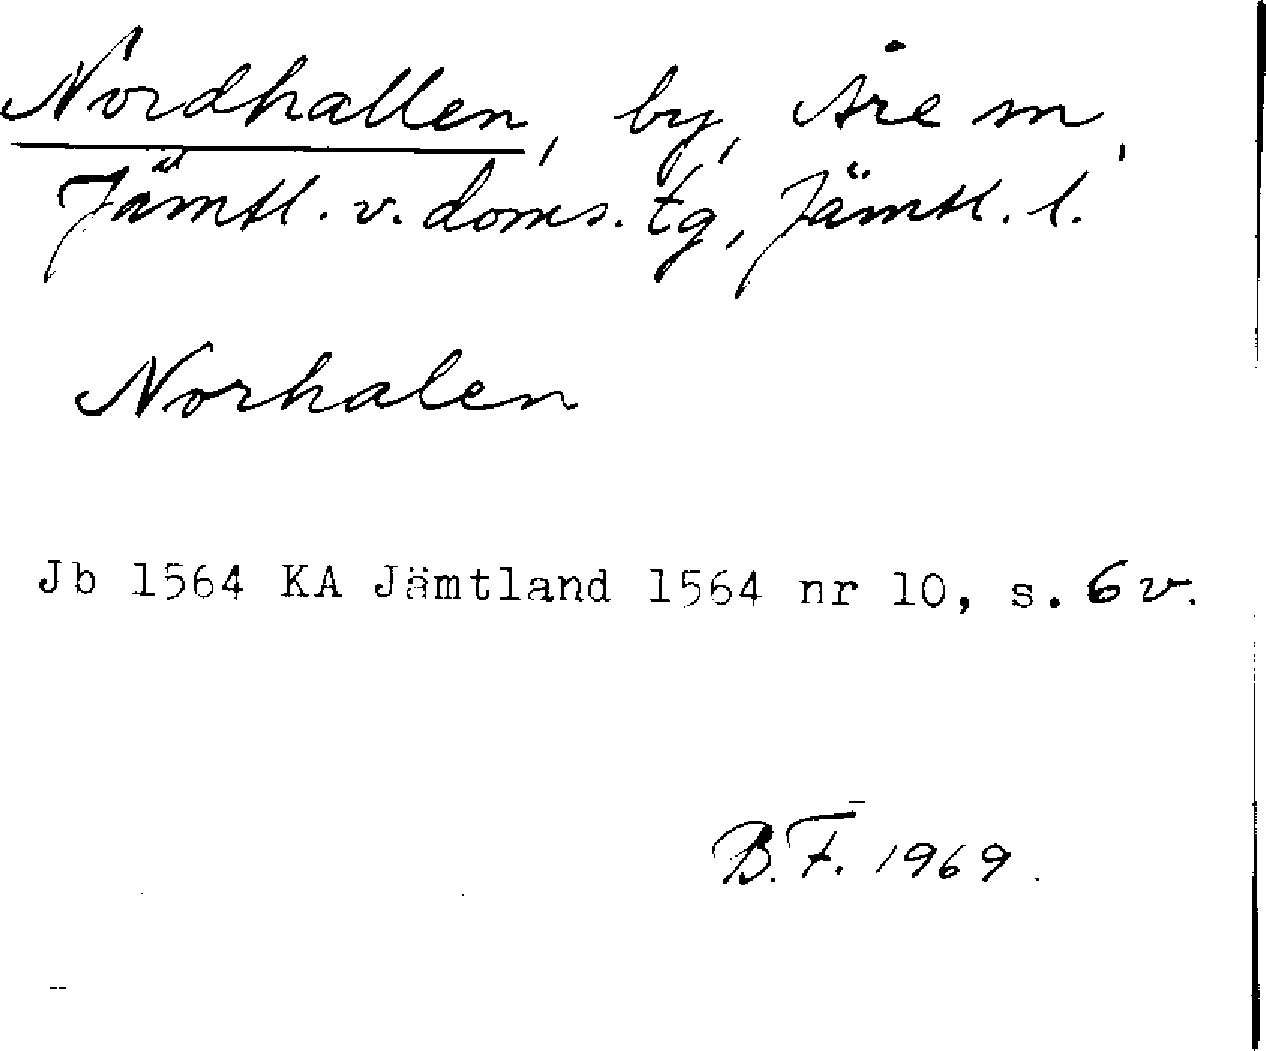 Nordhallen, by, Åre sn,
Jämtl. v. doms. tg, Jämtl. l.
Norhalen
Jb 1564 KA Jämtland 1564 nr 10, s. 6 v.
B.F. 1969.